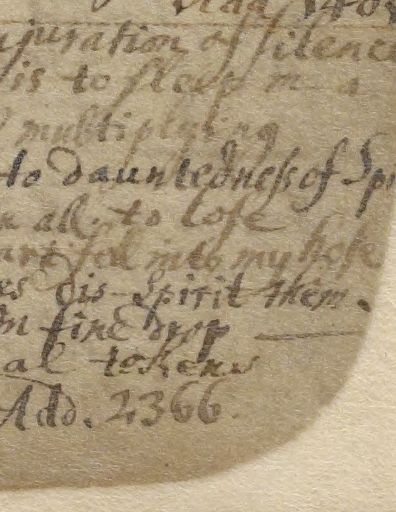 Add 140
njuration of silence
is to sleep in a
multiplying
to dauntedness of Spi
all to lose
into my hose
dis-Spirit them.
In fine drop
al tokens
Add. 2366.